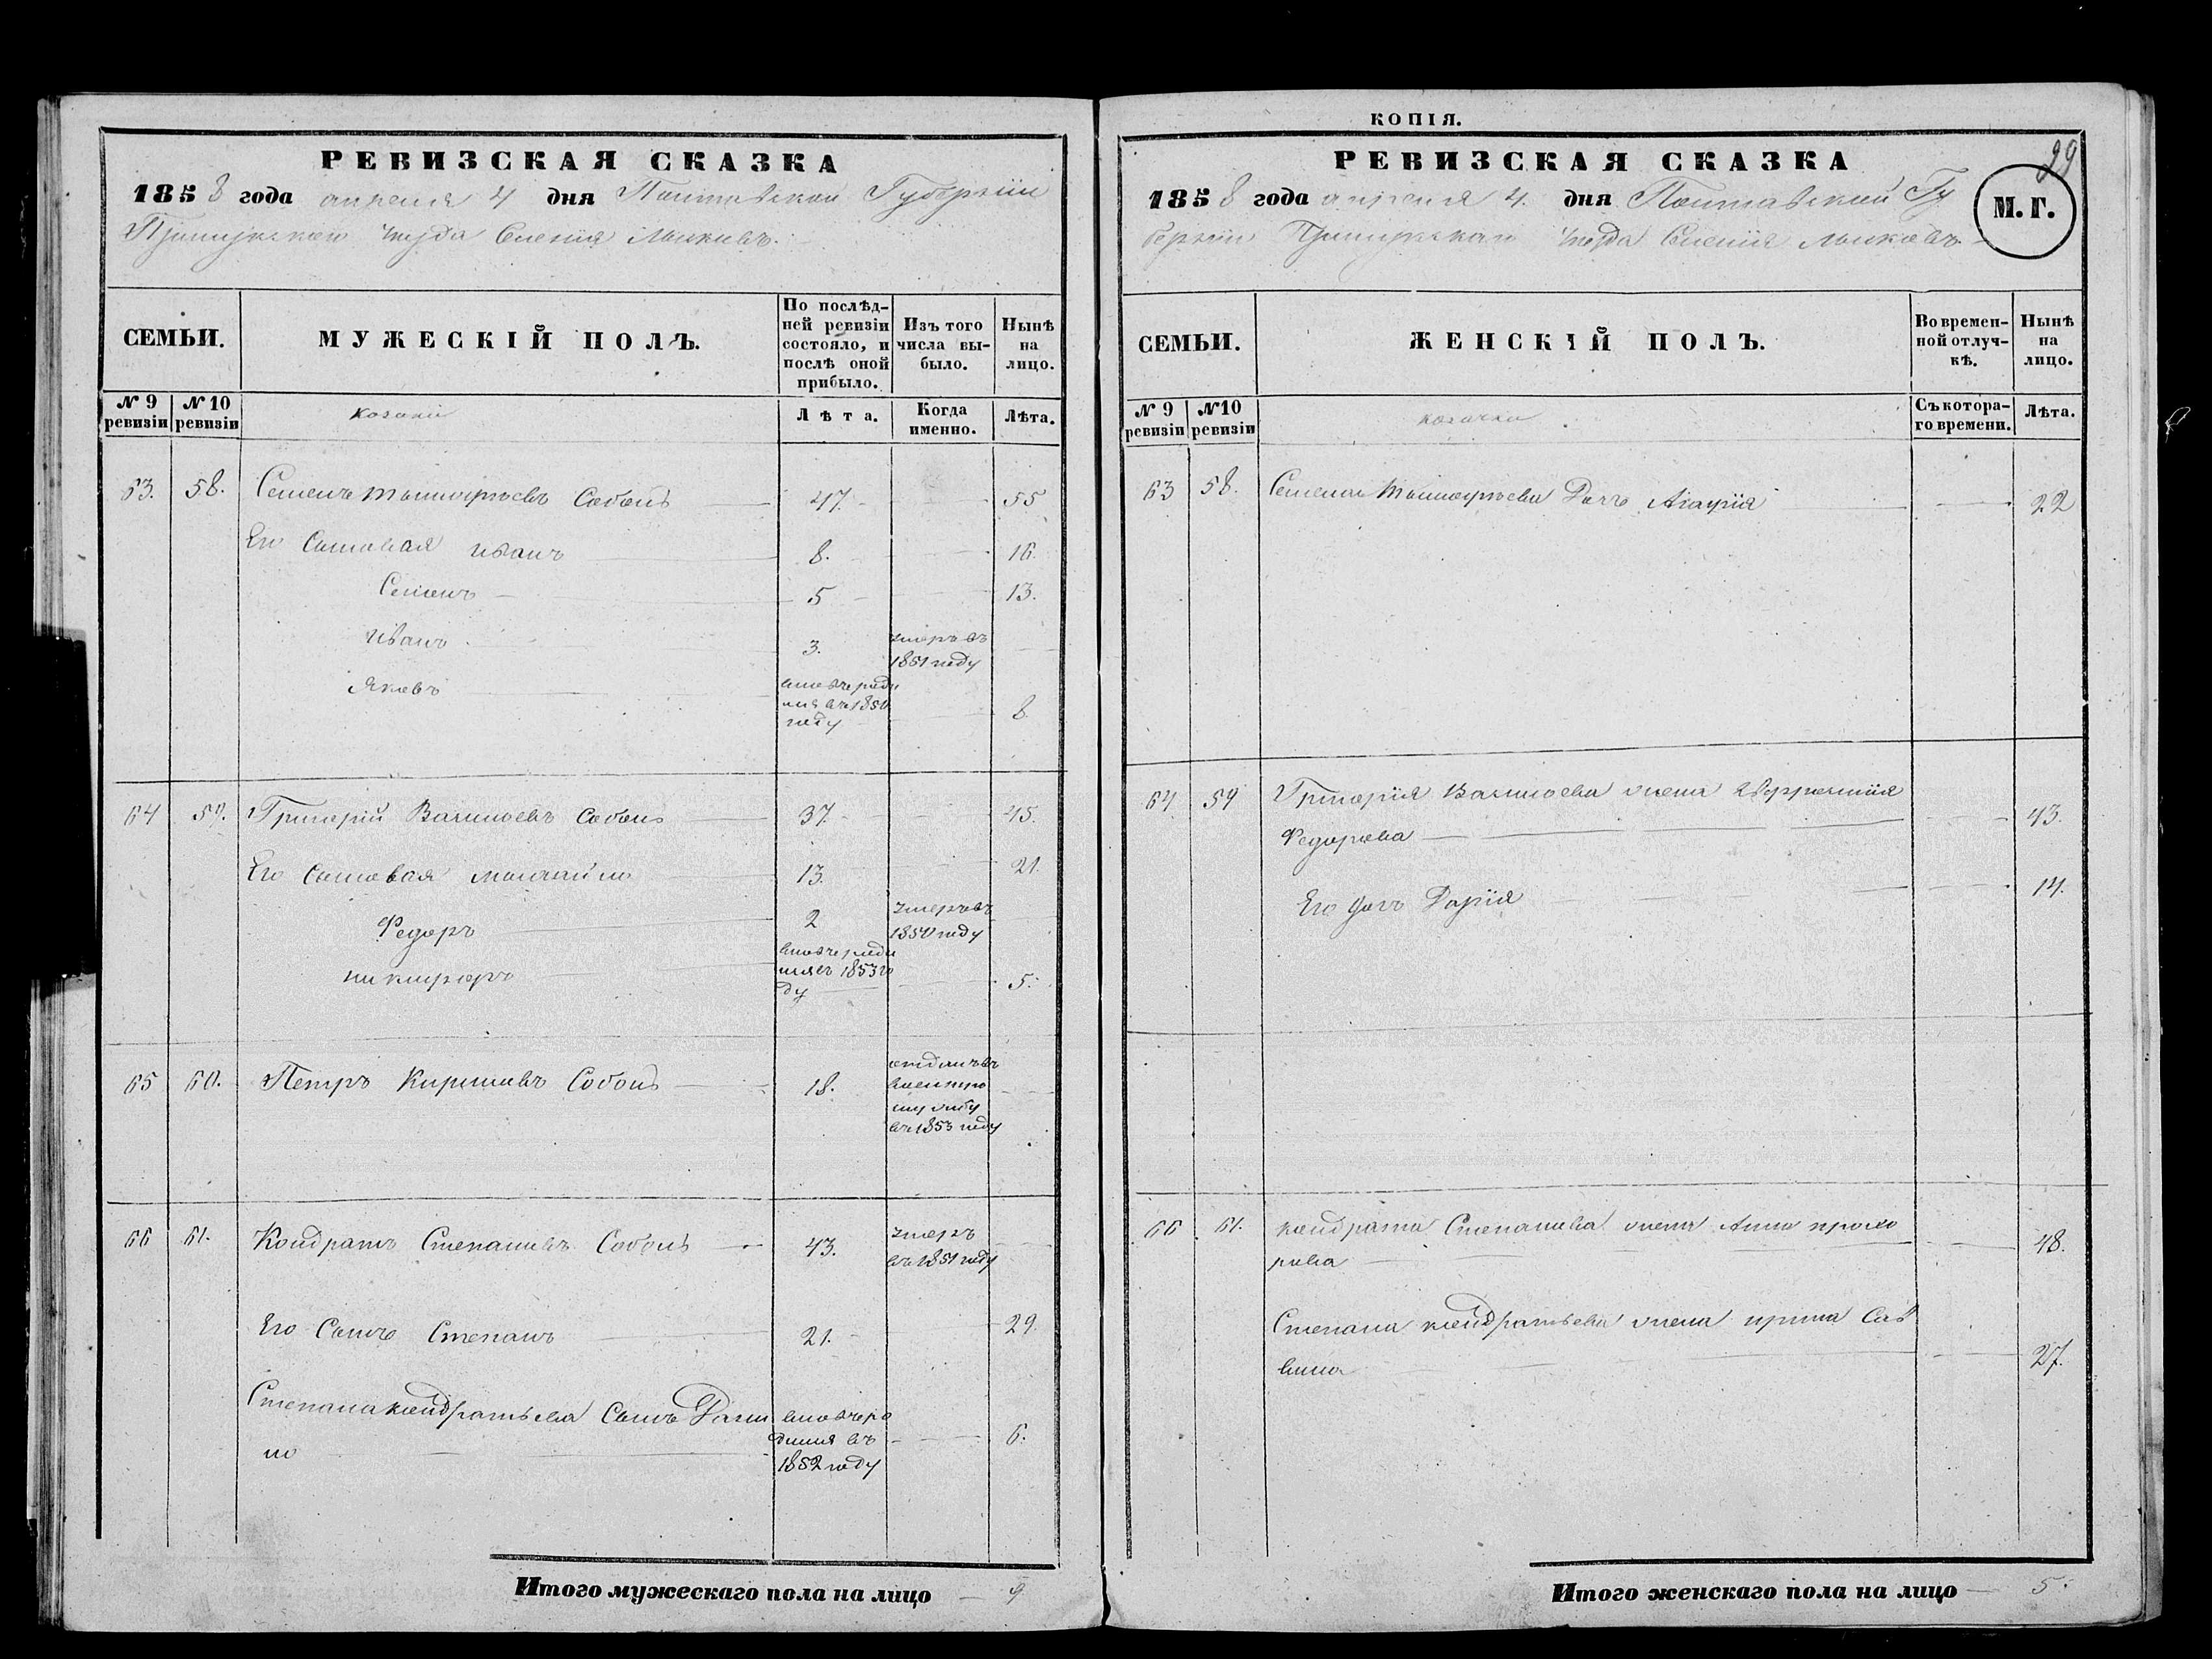 РЕВИЗСКАЯ СКАЗКА
1858 года апреля 4 дня Полтавской Губернии
Прилукской уезда Селения
СЕМЬИ.
МУЖЕСКІЙ ПОЛЪ.
По послѣд-
ней ревизіи
состояло, и
послѣ оной
прибыло.
Изъ того
числа вы-
было.
Нынѣ
на
лицо.
№ 9
ревизіи
№ 10
ревизіи
козаки
Лѣта.
Когда
именно.
Лѣта.
63. 58. Семенъ Соболь 47. 55
Его Сыновья Иванъ 8. 16.
Семенъ 5 13.
Иванъ 3. умеръ въ
1851 году
Яковъ
въ 1850
году 8
64 59. Григорій Соболь 37. 45.
Его Сыновья Михайло 13. 21.
Федоръ 2 умеръ въ
1850 году
Никифоръ
1853 го
ду 5.
65 60. Петръ Соболь 18. отданъ въ
въ 1853 году
66 61. Кондратъ Степановъ Соболь 43. умеръ
въ 1851 году
Его Сынъ Степанъ 21. 29
Степана Кондратьева Сынъ Дани
ло въ
1852 году 6.
Итого мужескаго пола на лицо 9
КОПІЯ.
29
РЕВИЗСКАЯ СКАЗКА
1858 года апреля 4. дня Полтавской Гу
бернии Прилукской уезда Селения
М. Г.
СЕМЬИ.
ЖЕНСКІЙ ПОЛЪ.
Во времен-
ной отлуч-
кѣ.
Нынѣ
на
лицо.
№ 9
ревизіи
№ 10
ревизіи
козачки
Съ котора-
го времени.
Лѣта.
63 58. Семена Дочь 22
64 59 Григорія жена
Федорова 43.
Его дочь Дарія 14.
66 61. Кондрата Степанова жена Анна Прохо
рова 48.
Степана Кондратьева жена Ирина Сав
вина 27.
Итого женскаго пола на лицо 5.